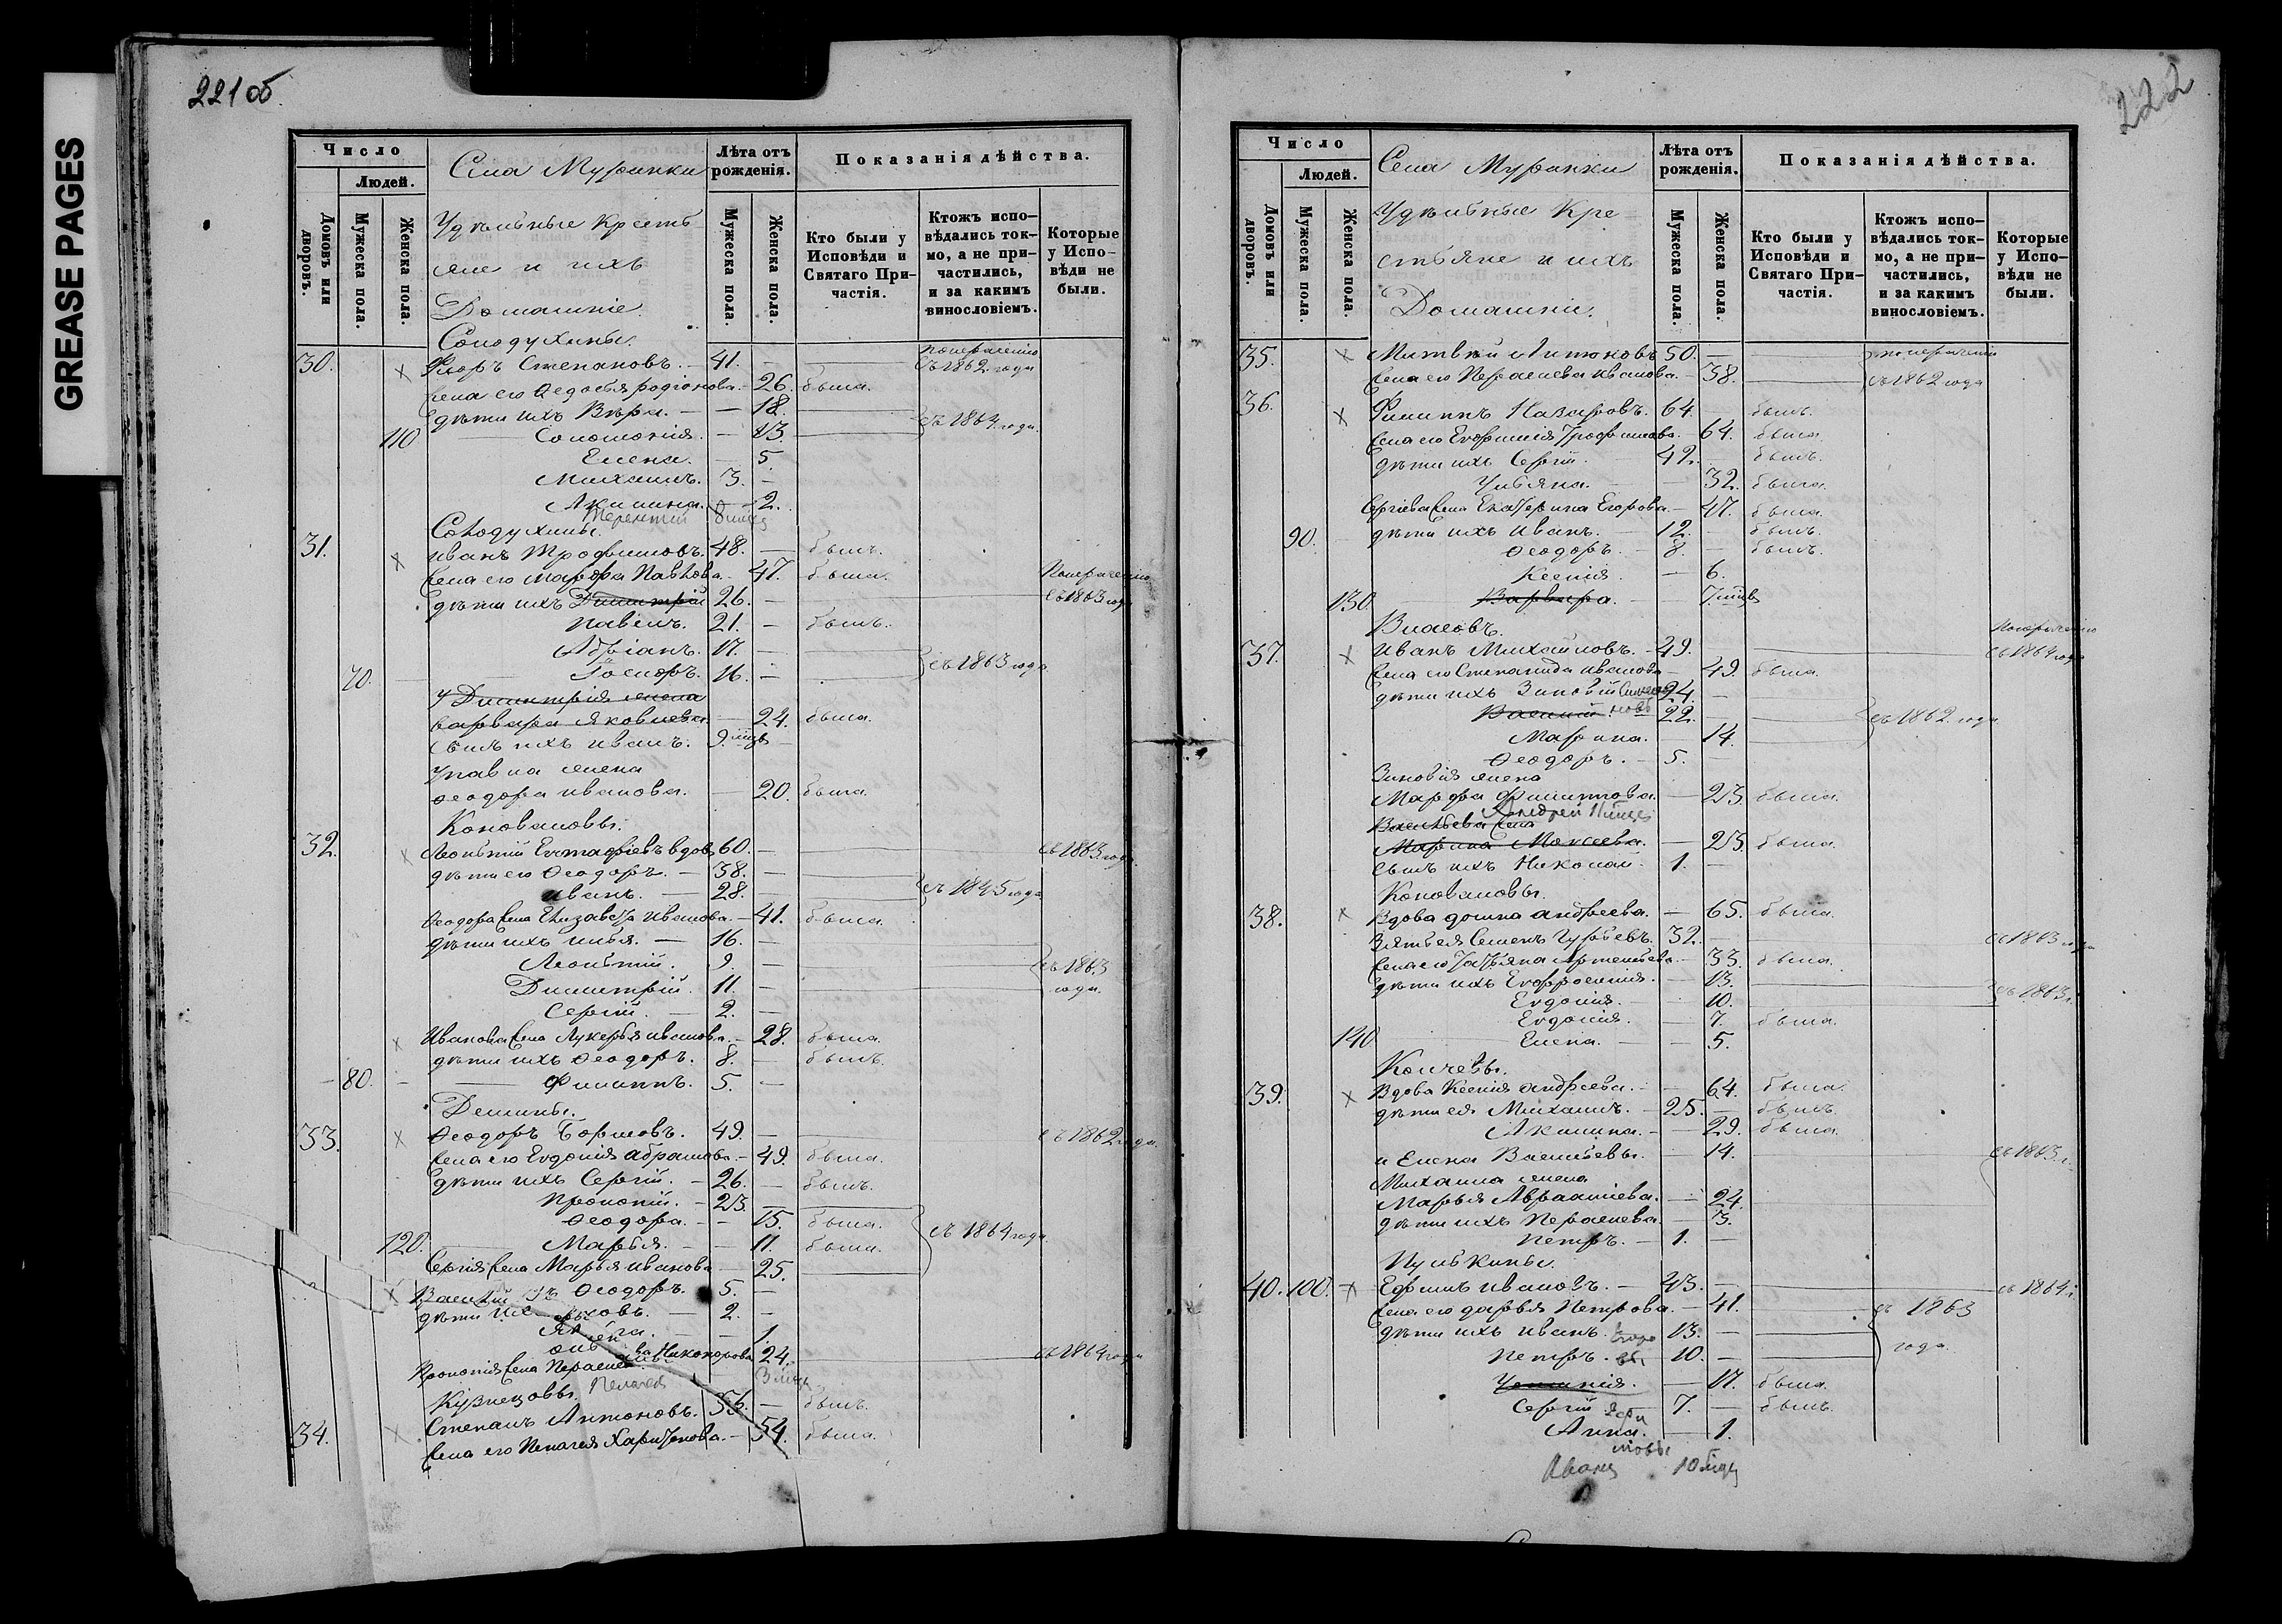 GREASE PAGES
221 об.
Число
Людей.
Домовъ или дворовъ.
Мужеска пола.
Женска пола.
Села Муранки
Удѣльные кресть
яне и ихъ
Домашніе.
Лѣта отъ рожденія.
Мужеска пола.
Женска пола.
Показанія дѣйства.
Кто были у Исповѣди и Святаго Причастія.
Ктожъ исповѣдались токмо, а не причастились, и за какимъ винословіемъ.
Которые у Исповѣди не были.
Солодухины.
30. Флоръ Степановъ. 41. съ 1862 года
жена его Ѳедосья Родіонова. 26. была.
дѣти ихъ Вѣра. 18.
110 Соломонія. 13. съ 1864 года.
Елена. 5
Михаилъ. 3.
Акилина. 2.
Терентій 8 мцъ
Солодухины.
31. Иванъ Трофимовъ. 48. былъ.
жена его Марѳа Павлова. 47. была.
дѣти ихъ Димитрій 26. съ 1863 года
Павелъ. 21. былъ.
Адріанъ. 17.
70. 16. съ 1863 года
Димитрія жена
Варвара Яковлева. 24. была.
сынъ ихъ Иванъ. 9 мцъ
Павла жена
Ѳеодора Иванова. 20. была.
Коноваловы.
32. Леонтій Евстафіевъ вдов. 60. съ 1863 года
дѣти его Ѳеодоръ. 38.
Иванъ. 28. съ 1845 года
Ѳеодора жена Елизавета Иванова. 41. была.
дѣти ихъ Илья. 16.
Леонтій. 9. съ 1863
Димитрій. 11. года.
Сергій. 2.
Иванова жена Лукерья Иванова. 28. была.
дѣти ихъ Ѳеодоръ. 8. былъ.
80. Филиппъ. 5.
Демины.
33. Ѳеодоръ Борисовъ. 49. съ 1862 года.
жена его Евдокія Абрамова. 49. была.
дѣти ихъ Сергій. 26. былъ.
Прокопій. 23.
Ѳеодора. 15. была.
120. Марья. 11. была. съ 1864 года.
Сергія жена Марья Иванова 25.
Ѳеодоръ. 5.
дѣти 2.
1.
Прокопія жена Никонорова 24. съ 1864 года
Пелагея 3 мцъ
Кузнецовы.
34. Степанъ Антоновъ. 55. былъ.
жена его Пелагея Харитонова. 54. была.
222
Число
Людей.
Домовъ или дворовъ.
Мужеска пола.
Женска пола.
Села Муранки
Удѣльные кре
стьяне и ихъ
Домашніе.
Лѣта отъ рожденія.
Мужеска пола.
Женска пола.
Показанія дѣйства.
Кто были у Исповѣди и Святаго Причастія.
Ктожъ исповѣдались токмо, а не причастились, и за какимъ винословіемъ.
Которые у Исповѣди не были.
35. Матвѣй Антоновъ 50.
жена его Параскева Иванова. 38. съ 1862 года
36. Филиппъ Назаровъ. 64. былъ.
жена его Евфимія Трофимова. 64. была.
дѣти ихъ Сергій. 42. былъ.
Ульяна. 32. была.
Сергіева жена Екатерина Егорова. 47. была.
90. дѣти ихъ Иванъ. 12. былъ.
Ѳеодоръ. 8. былъ.
Ксенія. 6.
130. Варвара. 7 мцъ
Власовъ.
37. Иванъ Михайловъ. 49. съ 1864 года
жена его Степанида Иванова 49. была.
дѣти ихъ Зиновій 24.
Василій 22. съ 1862 года
Марина. 14.
Ѳеодоръ. 5.
Зиновія жена
Марѳа Филиппова. 23. была.
Андрей
Васильева жена
Марина Моисеева. 23. была.
сынъ ихъ Николай. 1.
Коноваловы.
38. Вдова Домна Андреева. 65. была.
зять ея Семенъ Гурьевъ. 32. съ 1863 года
жена его Татьяна Арт 33. была.
дѣти ихъ Евфросинія. 13.
Евдокія. 10. съ 1863 г.
Евдокія. 7. была.
140 Елена. 5.
39. Вдова Ксенія Андреева. 64. была.
дѣти ея Михаилъ. 25. былъ.
Акилина. 29. была.
и Елена Васильевы. 14. съ 1863 г.
Михаила жена
Марья Авраамiева. 24.
дѣти ихъ Параскева. 3.
Петръ. 1.
Пулькины.
40. 100. Ефимъ Ивановъ. 43. съ 1864 г.
жена его Дарья Петрова. 41. съ 1863
дѣти ихъ Иванъ. 13. года
Петръ. 10.
17. была.
Сергій 7. былъ.
Анна. 1.
Иванъ 10 мцъ